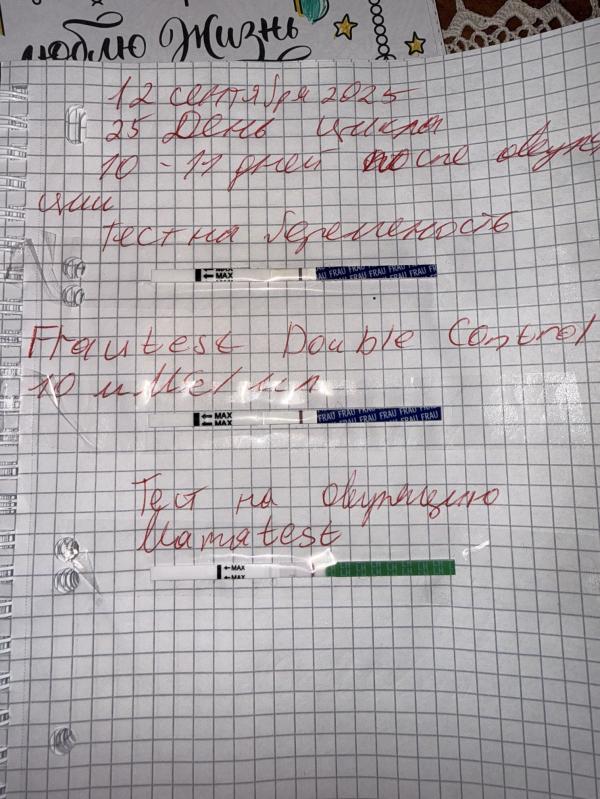 люблю Жизнь
12 сентября 2025
25 День цикла
10 - 11 дней после овуля
ции
Тест на беременость
MAX
MAX
FRAU FRAU FRAU FRAU
FRAU FRAU FRAU FRAU
Frautest Double Control
10 мМЕ/мл
MAX
MAX
FRAU FRAU FRAU FRAU
FRAU FRAU FRAU FRAU
Тест на овуляцию
Mamatest
MAX
MAX